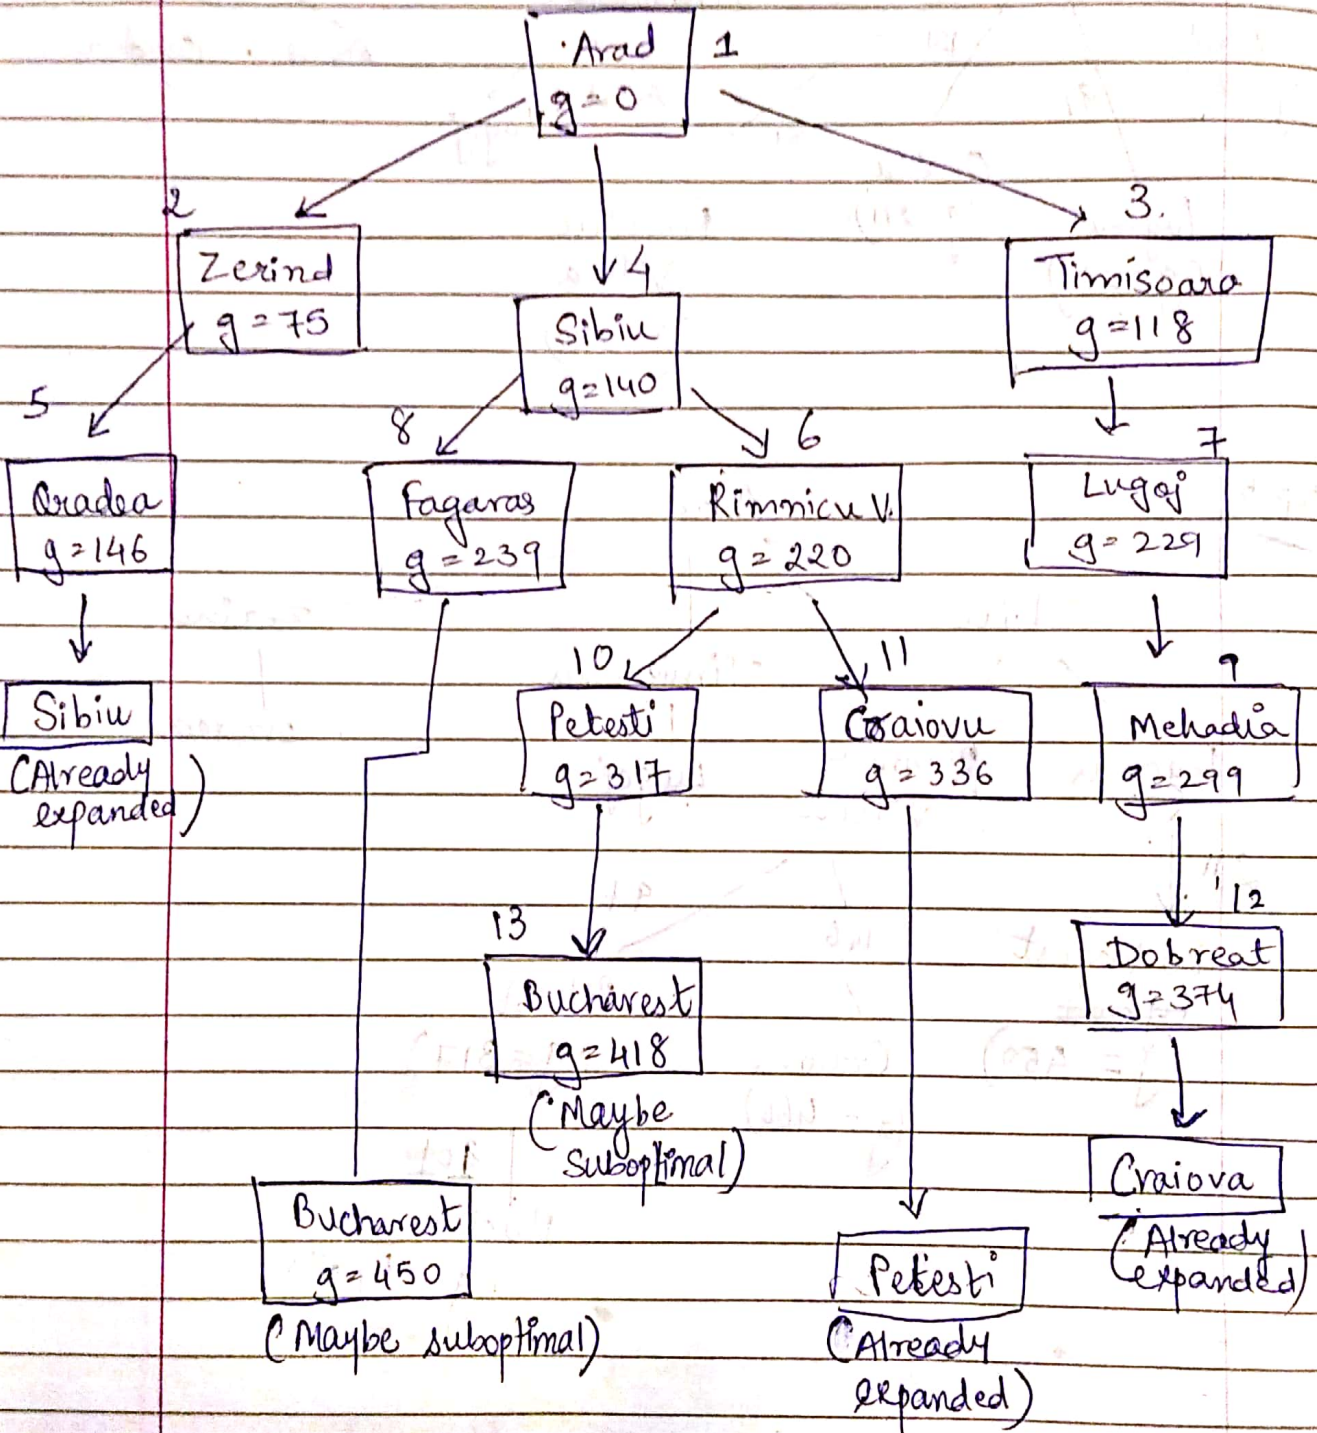 Arad 1
g=0
2
Zerind
g=75
4
Sibiu
g=140
3.
Timisoara
g=118
5
Oradea
g=146
8
Fagaras
g=239
6
Rimnicu V.
g=220
7
Lugoj
g=229
Sibiu
(Already
expanded)
10
Petesti
g=317
11
Craiovu
g=336
9
Mehadia
g=299
13
Bucharest
g=418
(Maybe
suboptimal)
12
Dobreat
g=374
Bucharest
g=450
(Maybe suboptimal)
Petesti
(Already
expanded)
Craiova
(Already
expanded)